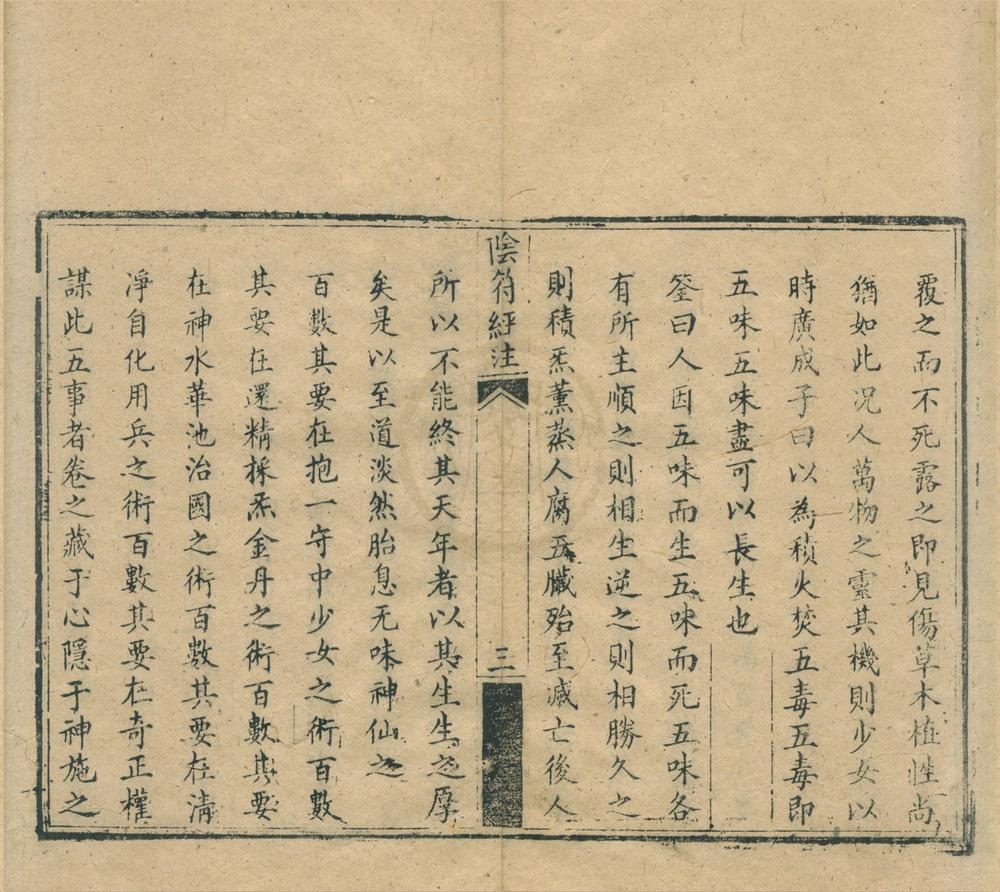 覆之而不死露之即見傷草木植性尚
猶如此况人萬物之靈其機則少女以
時廣成子曰以為積火焚五毒五毒即
五味五味盡可以長生也
筌曰人因五味而生五味而死五味各
有所主順之則相生逆之則相勝久之
則積炁薰蒸人腐五臟殆至滅亡後人
陰符經注
三
所以不能終其天年者以其生生之厚
矣是以至道淡然胎息无味神仙之
百數其要在抱一守中少女之術百數
其要在還精採炁金丹之術百數其要
在神水華池治國之術百數其要在清
凈自化用兵之術百數其要在奇正權
謀此五事者卷之藏于心隱于神施之